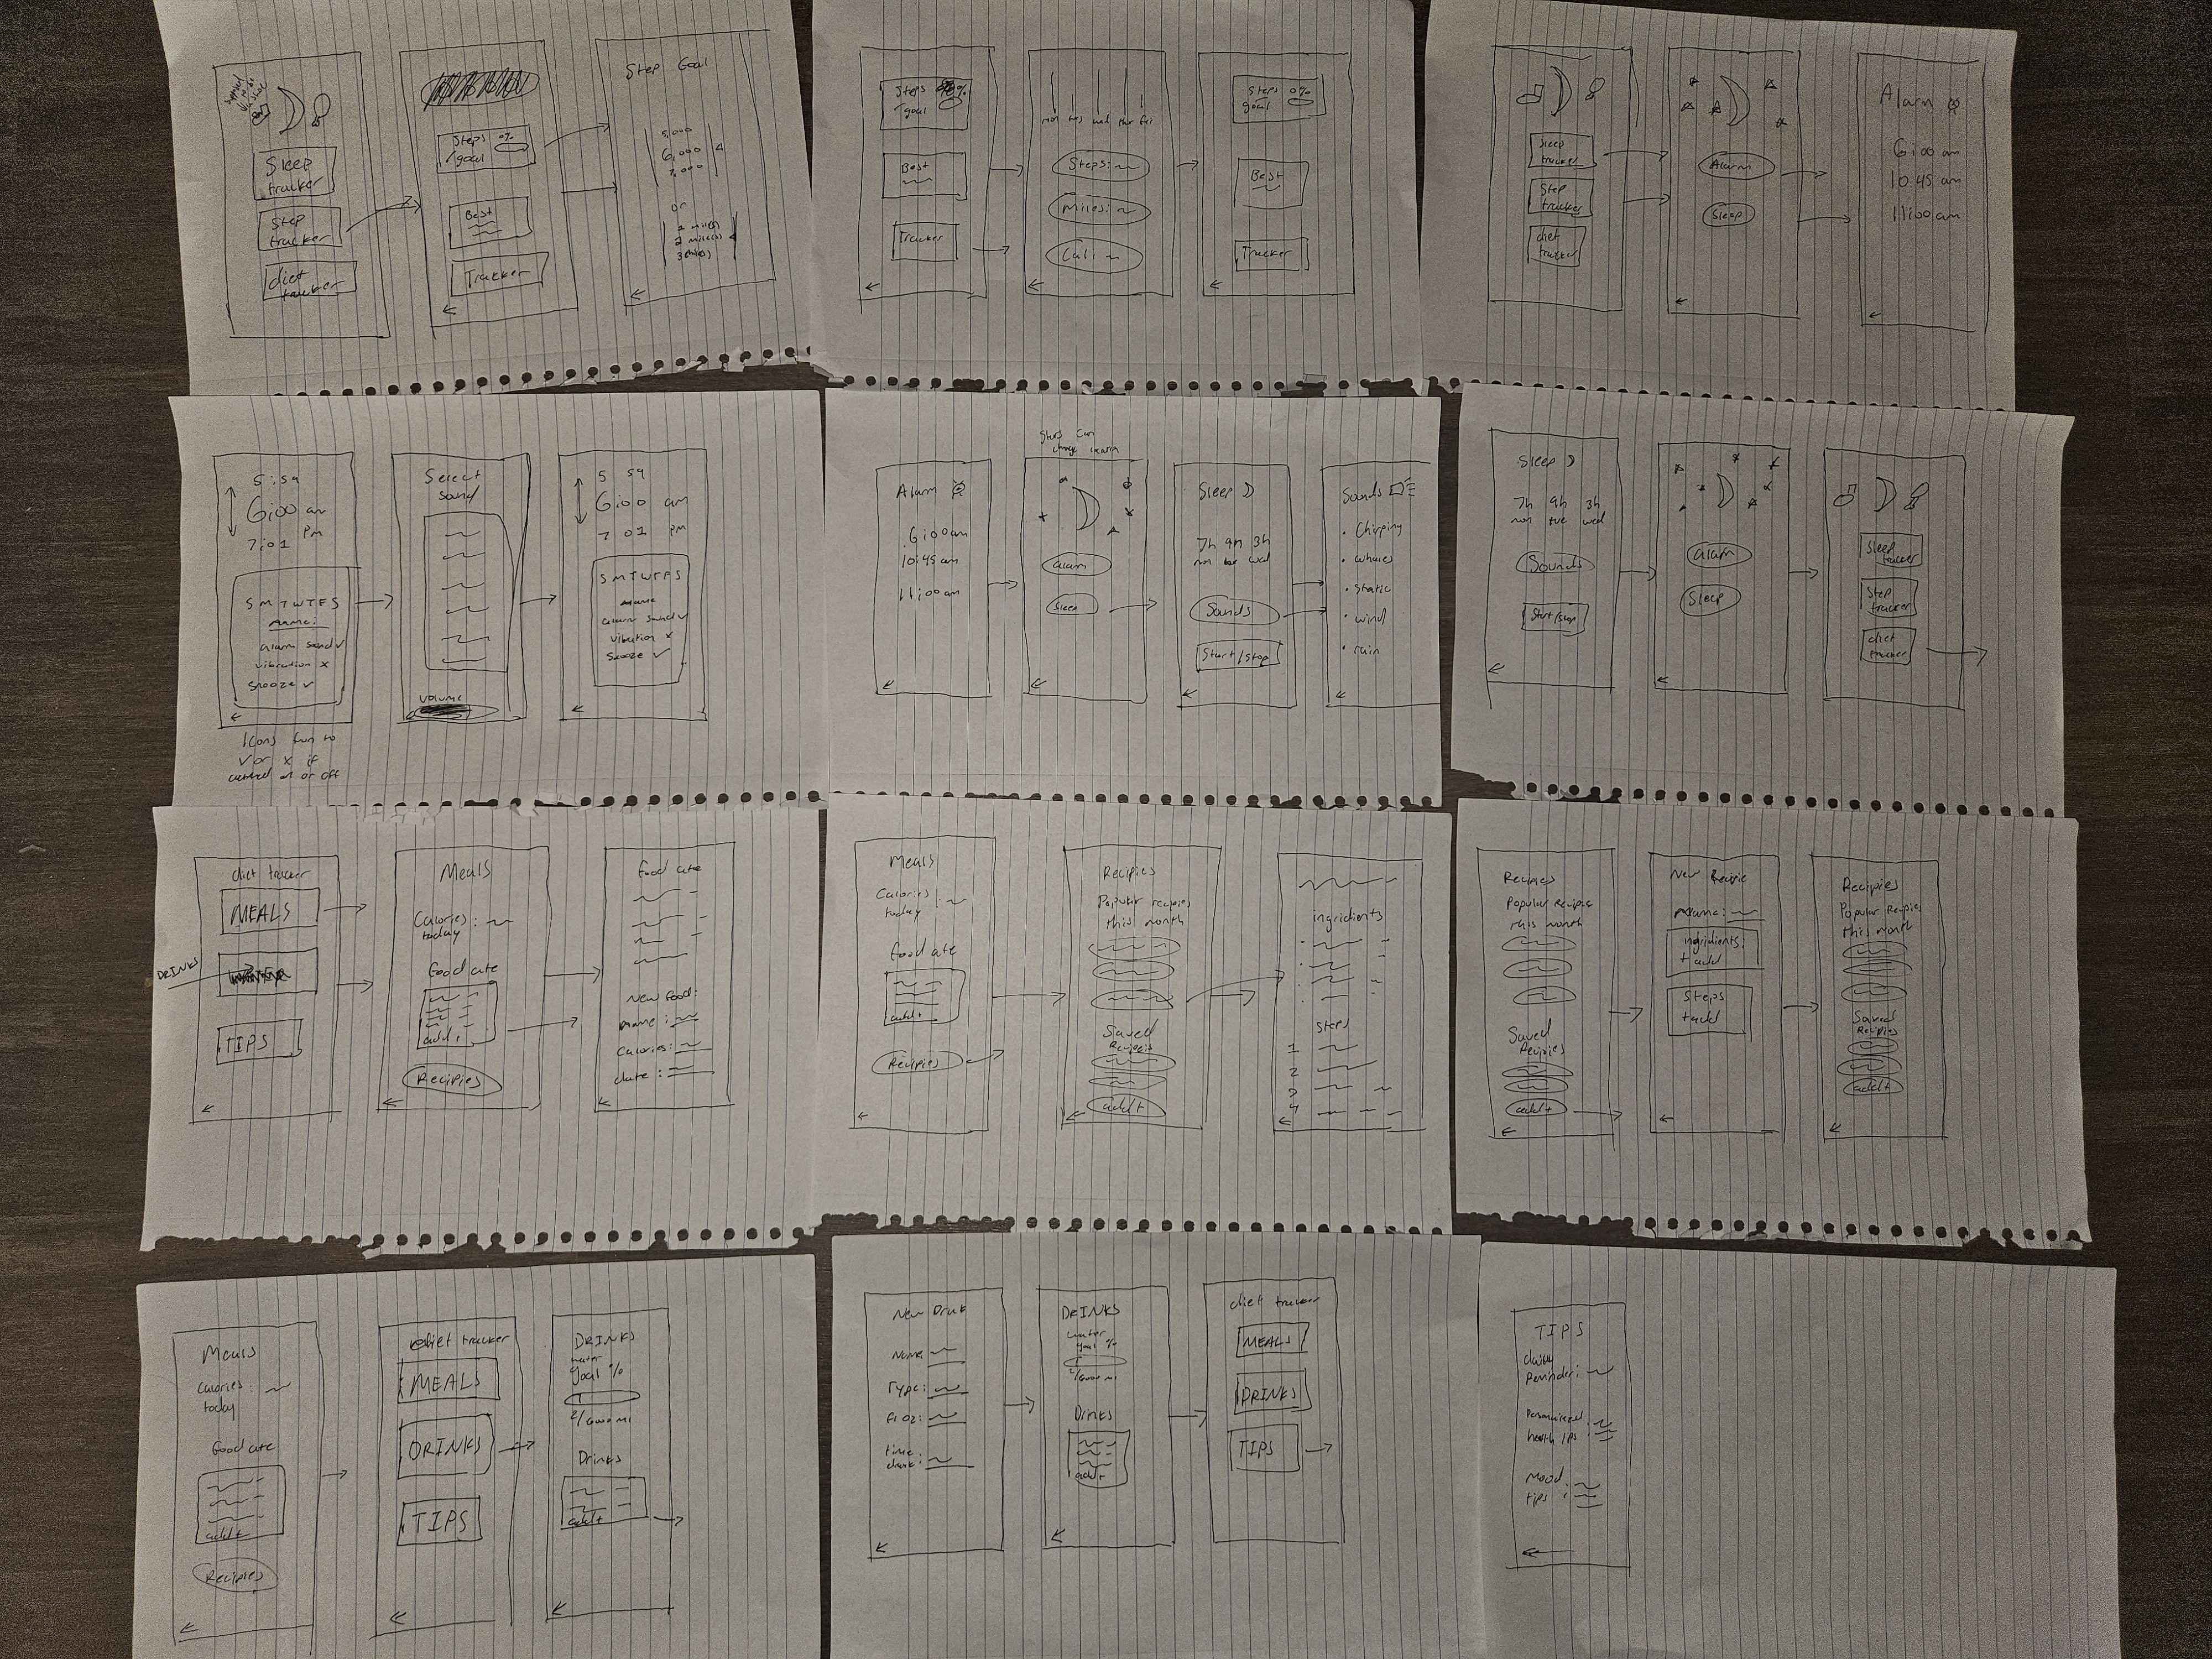 Sleep
tracker
Step
tracker
diet
tracker
Steps 0%
/goal
Best
Tracker
Step Goal
5,000
6,000
7,000
or
1 mile(s)
2 mile(s)
3 mile(s)
Steps
/goal
Best
Tracker
mon tues wed thur fri
Steps:
Miles:
Cal:
Steps 0%
goal
Best
Tracker
Sleep
tracker
Step
tracker
diet
tracker
Alarm
Sleep
Alarm
6:00 am
10:45 am
11:00 am
5:59
6:00 am
7:01 pm
S M T W T F S
name:
alarm sound ✓
vibration x
Snooze ✓
Icons turn to
✓ or x if
turned on or off
Select
sound
volume
5 59
6:00 am
7 01 pm
S M T W T F S
name
alarm sound ✓
vibration x
Snooze ✓
Alarm
6:00am
10:45 am
11:00am
Stars can
change
alarm
Sleep
Sleep
7h 9h 3h
mon tue wed
Sounds
Start/Stop
Sounds
• Chirping
• whales
• static
• wind
• rain
Sleep
7h 9h 3h
mon tue wed
Sounds
Start/Stop
alarm
Sleep
Sleep
tracker
Step
tracker
diet
tracker
diet tracker
MEALS
DRINKS
TIPS
Meals
Calories:
today
Food ate
add+
Recipies
Food ate
New food:
name:
Calories:
date:
Meals
Calories:
today
Food ate
add+
Recipies
Recipies
Popular recipies
this month
Saved
Recipies
add+
ingridients
Steps
1
2
3
4
Recipies
Popular Recipies
this month
Saved
Recipies
add+
New Recipie
name:
ingridients:
+add
Steps
+add
Recipies
Popular Recipies
this month
Saved
Recipies
add+
Meals
Calories:
today
Food ate
add+
Recipies
diet tracker
MEALS
DRINKS
TIPS
DRINKS
water
goal %
Drinks
add+
New Drink
Name
Type:
fl oz:
time
drank:
DRINKS
water
goal %
Drinks
add+
diet tracker
MEALS
DRINKS
TIPS
TIPS
daily
Reminder:
Personalized
health tips:
Mood
tips: